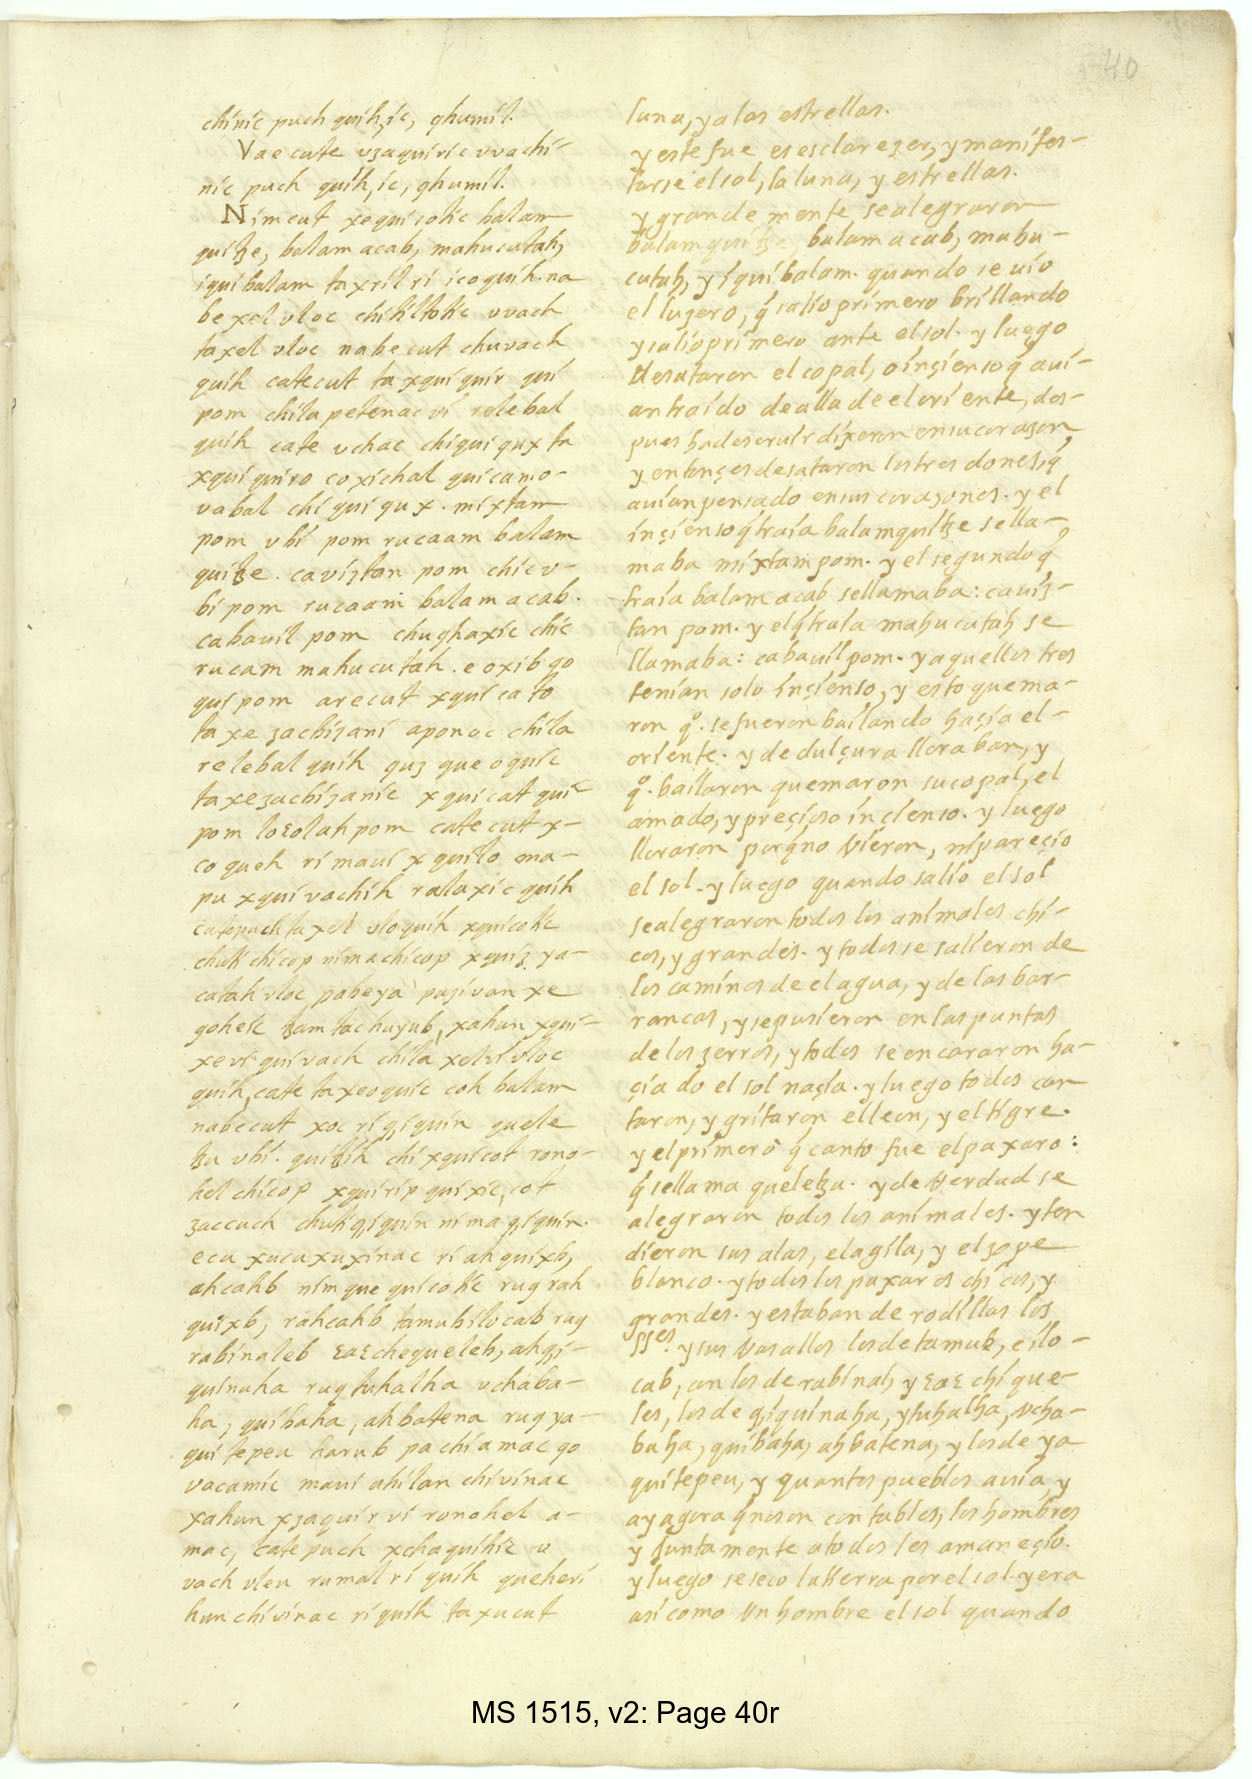 40
chinic puch quih, ic, qhumil.
Vae cute vzaquiric vvachi-
nic puch quih, ic, qhumil.
Nim cut xequicotic balam
quitze, balam acab, mahucutah,
iquibalam taxril ri icoquih. na
be xel vloc chihiltotic vvach
taxel vloc nabe cut chuvach
quih catecut ta xquiquir qui
pom chila petenac vi relebal
quih cate vchac chiquiqux ta
xquiquiro coxichal quicamo-
vabal chi quiqux. mixtam
pom vbi pom rucaam balam
quitze. caviztan pom chic v-
bi pom rucaam balam acab.
cabauil pom chuqhaxic chic
rucam mahucutah. e oxib qo
qui pom arecut xquicato
ta xe zachizani aponoc chila
relebal quih quz que oquic
ta xezachizanic xquicat qui
pom loεolah pom cate cut x-
coqueh ri maui xquilo ma-
pu xquivachih ralaxic quih
catepuch ta xel vloquih xquicotic
chuti chicop nima chicop xquiz ya-
catah vloc pabeya pazivan xe
goheic tzam tac huyub, xahun xqui-
xe vi quivach chila xel vi vloc
quih, cate ta xeoquic coh balam
nabecut xoc ri qziquin quele
tzu vbi. quitzih chi xquicot rono-
hel chicop xquirip quixic, cot
zaccuch chuti qziquin nima qziquin.
eca xucaxuxinac ri ahquixb,
ahcahb nim que quicotic ruq rah
quixb, rahcahb tamub ilocab ruq
rabinaleb εaεchequeleb, ahqzi-
quinaha ruq tuhalha vchaba-
ha, quibaha, ahbatena ruq ya-
qui tepeu harub pa chi amac qo
vacamic maui ahilan chi vinac
xahun xzaquir vi ronohel a-
mac, cate puch xchaquihic v
vach vleu rumal ri quih queheri
hun chi vinac ri quih ta xucut
luna, y a las estrellas.
y este fue es esclarezer, y manifes-
tarse el sol, la luna, y estrellas.
y grande mente se alegraron
balamquitze, balam acab, mahu-
cutah, y iqui balam. quando se uio
el luzero, q̃ salio primero brillando
y salio primero ante el sol. y luego
desataron el copal, o inçienso q̃ aui-
an traido de alla de el oriente, des-
pues ha de seruir dixeron en su corazon,
y entonçes desataron los tres dones, q̃
auian pensado en sus corazones. y el
inçienso q̃ traia balamquitze se lla-
maba mixtam pom. y el segundo q̃
traia balam acab se llamaba: cauiz-
tan pom. y el q̃ traia mahucutah se
llamaba: cabauil pom. y aquellos tres
tenian solo inçienso, y esto quema-
ron qº. se fueron bailando haçia el-
oriente. y de dulçura lloraban, y
qº. bailaron quemaron su copal, el
amado, y preçioso inçienso. y luego
lloraron porq̃ no vieron, ni pareçio
el sol. y luego quando salio el sol
se alegraron todos los animales chi-
cos, y grandes. y todos se salieron de
los caminos de el agua, y de las bar-
rancas, y se pusieron en las puntas
de los zerros, y todos se encararon ha-
çia do el sol naçia. y luego todos can
taron, y gritaron el leon, y el tigre.
y el primero q̃ canto fue el paxaro:
q̃ se llama queletzu. y de verdad se
alegraron todos los animales. y ten
dieron sus alas, el agila, y el zope
blanco. y todos los paxaros chicos, y
grandes. y estaban de rodillas los
SSes. y sus vasallos los de tamub, e ilo-
cab, con los de rabinal, y εaεchique-
les, los de qziquinaha, y tuhalha, vcha-
baha, quibaha, ahbatena, y los de ya
qui tepeu, y quantos pueblos auia, y
ay agora q̃ no son contables, los hombres
y juntamente a todos les amaneçio.
y luego se seco la tierra por el sol. y era
asi como vn hombre el sol quando
MS 1515, v2: Page 40r